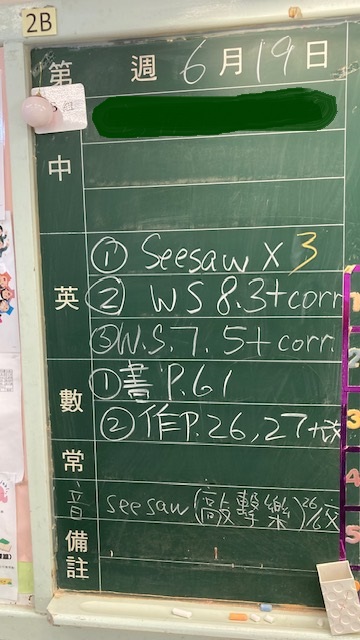 2B
第 週 6月19日
中
英
① Seesaw X 3
② WS 8.3+corr
③ W.S. 7.5+corr.
數
① 書 P.61
② 作 P.26,27+改
常
音 seesaw (敲擊樂) 26/6交
備註
1
2
3
4
5